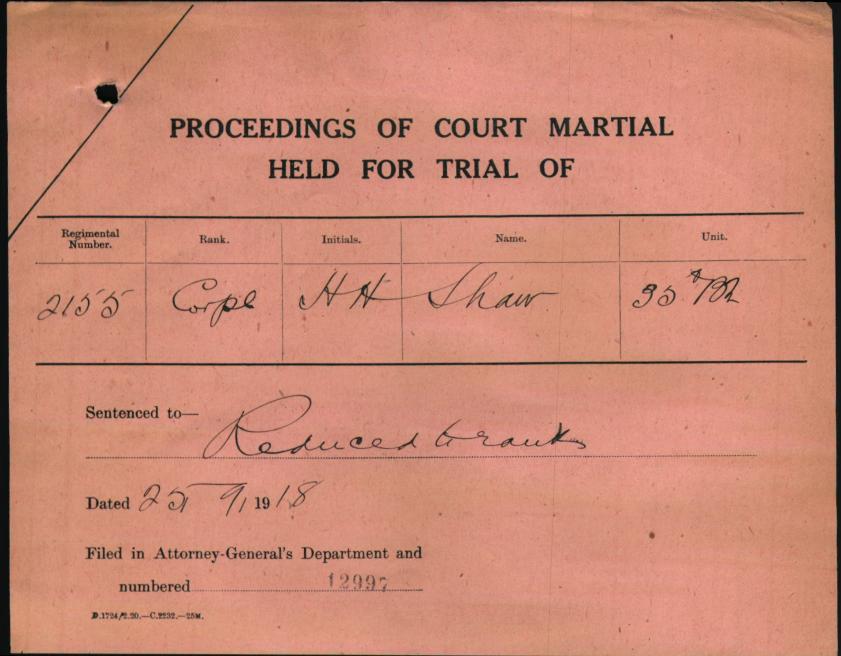 PROCEEDINGS OF COURT MARTIAL
HELD FOR TRIAL OF
Regimental Number. Rank. Initials. Name. Unit.
2155 Corpl H H Shaw 35th Bn
Sentenced to—
Reduced to ranks
Dated 25/9/1918
Filed in Attorney-General's Department and
numbered 12997
D.1724/2.20.—C.2232.—25M.